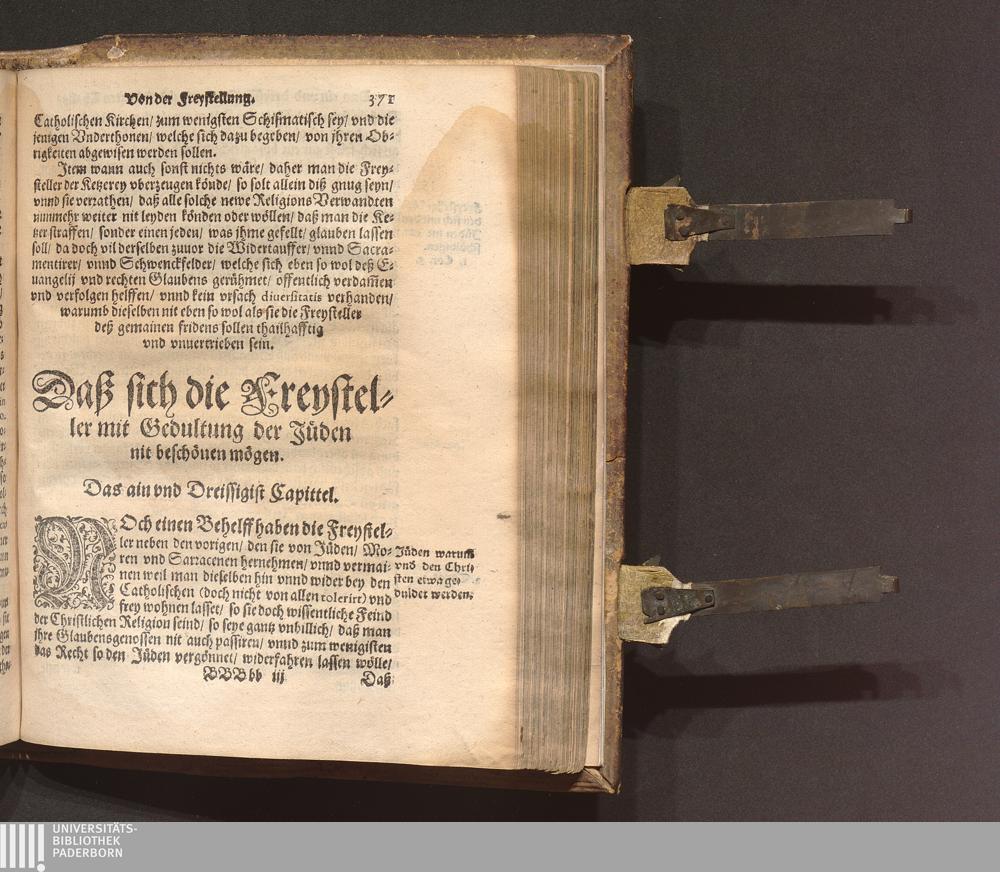 Von der Freystellung. 371
Catholischen Kirchen/ zum wenigsten Schismatisch sey/ vnd die
jenigen Vnderthonen/ welche sich dazu begeben/ von jhren Ob-
rigkeiten abgewisen werden sollen.
Item wann auch sonst nichts wäre/ daher man die Frey-
steller der Ketzerey vberzeugen köndte/ so solt allein diß gnug seyn/
vnnd sie verrathen/ daß alle solche newe Religions Verwandten
nunmehr weiter nit leyden könden oder wöllen/ daß man die Ke-
tzer straffen/ sonder einen jeden/ was jhme gefellt/ glauben lassen
soll/ da doch vil derselben zuuor die Widertauffer/ vnnd Sacra-
mentirer/ vnnd Schwenckfelder/ welche sich eben so wol deß E-
uangelij vnd rechten Glaubens gerühmet/ offentlich verdam̃en
vnd verfolgen helffen/ vnnd kein vrsach diuersitatis verhanden/
warumb dieselben nit eben so wol als sie die Freysteller
deß gemainen fridens sollen thailhafftig
vnd vnuertrieben sein.
Daß sich die Freystel-
ler mit Gedultung der Jüden
nit beschönen mögen.
Das ain vnd Dreissigist Capittel.
NOch einen Behelff haben die Freystel-
ler neben den vorigen/ den sie von Jüden/ Mo-
ren vnd Sarracenen hernehmen/ vnnd vermai-
nen weil man dieselben hin vnnd wider bey den
Catholischen (doch nicht von allen tolerirt) vnd
frey wohnen lasset/ so sie doch wissentliche Feind
der Christlichen Religion seind/ so seye gantz vnbillich/ daß man
jhre Glaubensgenossen nit auch passiren/ vnnd zum wenigisten
das Recht so den Jüden vergönnet/ widerfahren lassen wölle/
Jüden warum̃
vnd den Chri-
sten etwa ge-
duldet werden.
BBBbb iij Daß
UNIVERSITÄTS-
BIBLIOTHEK
PADERBORN